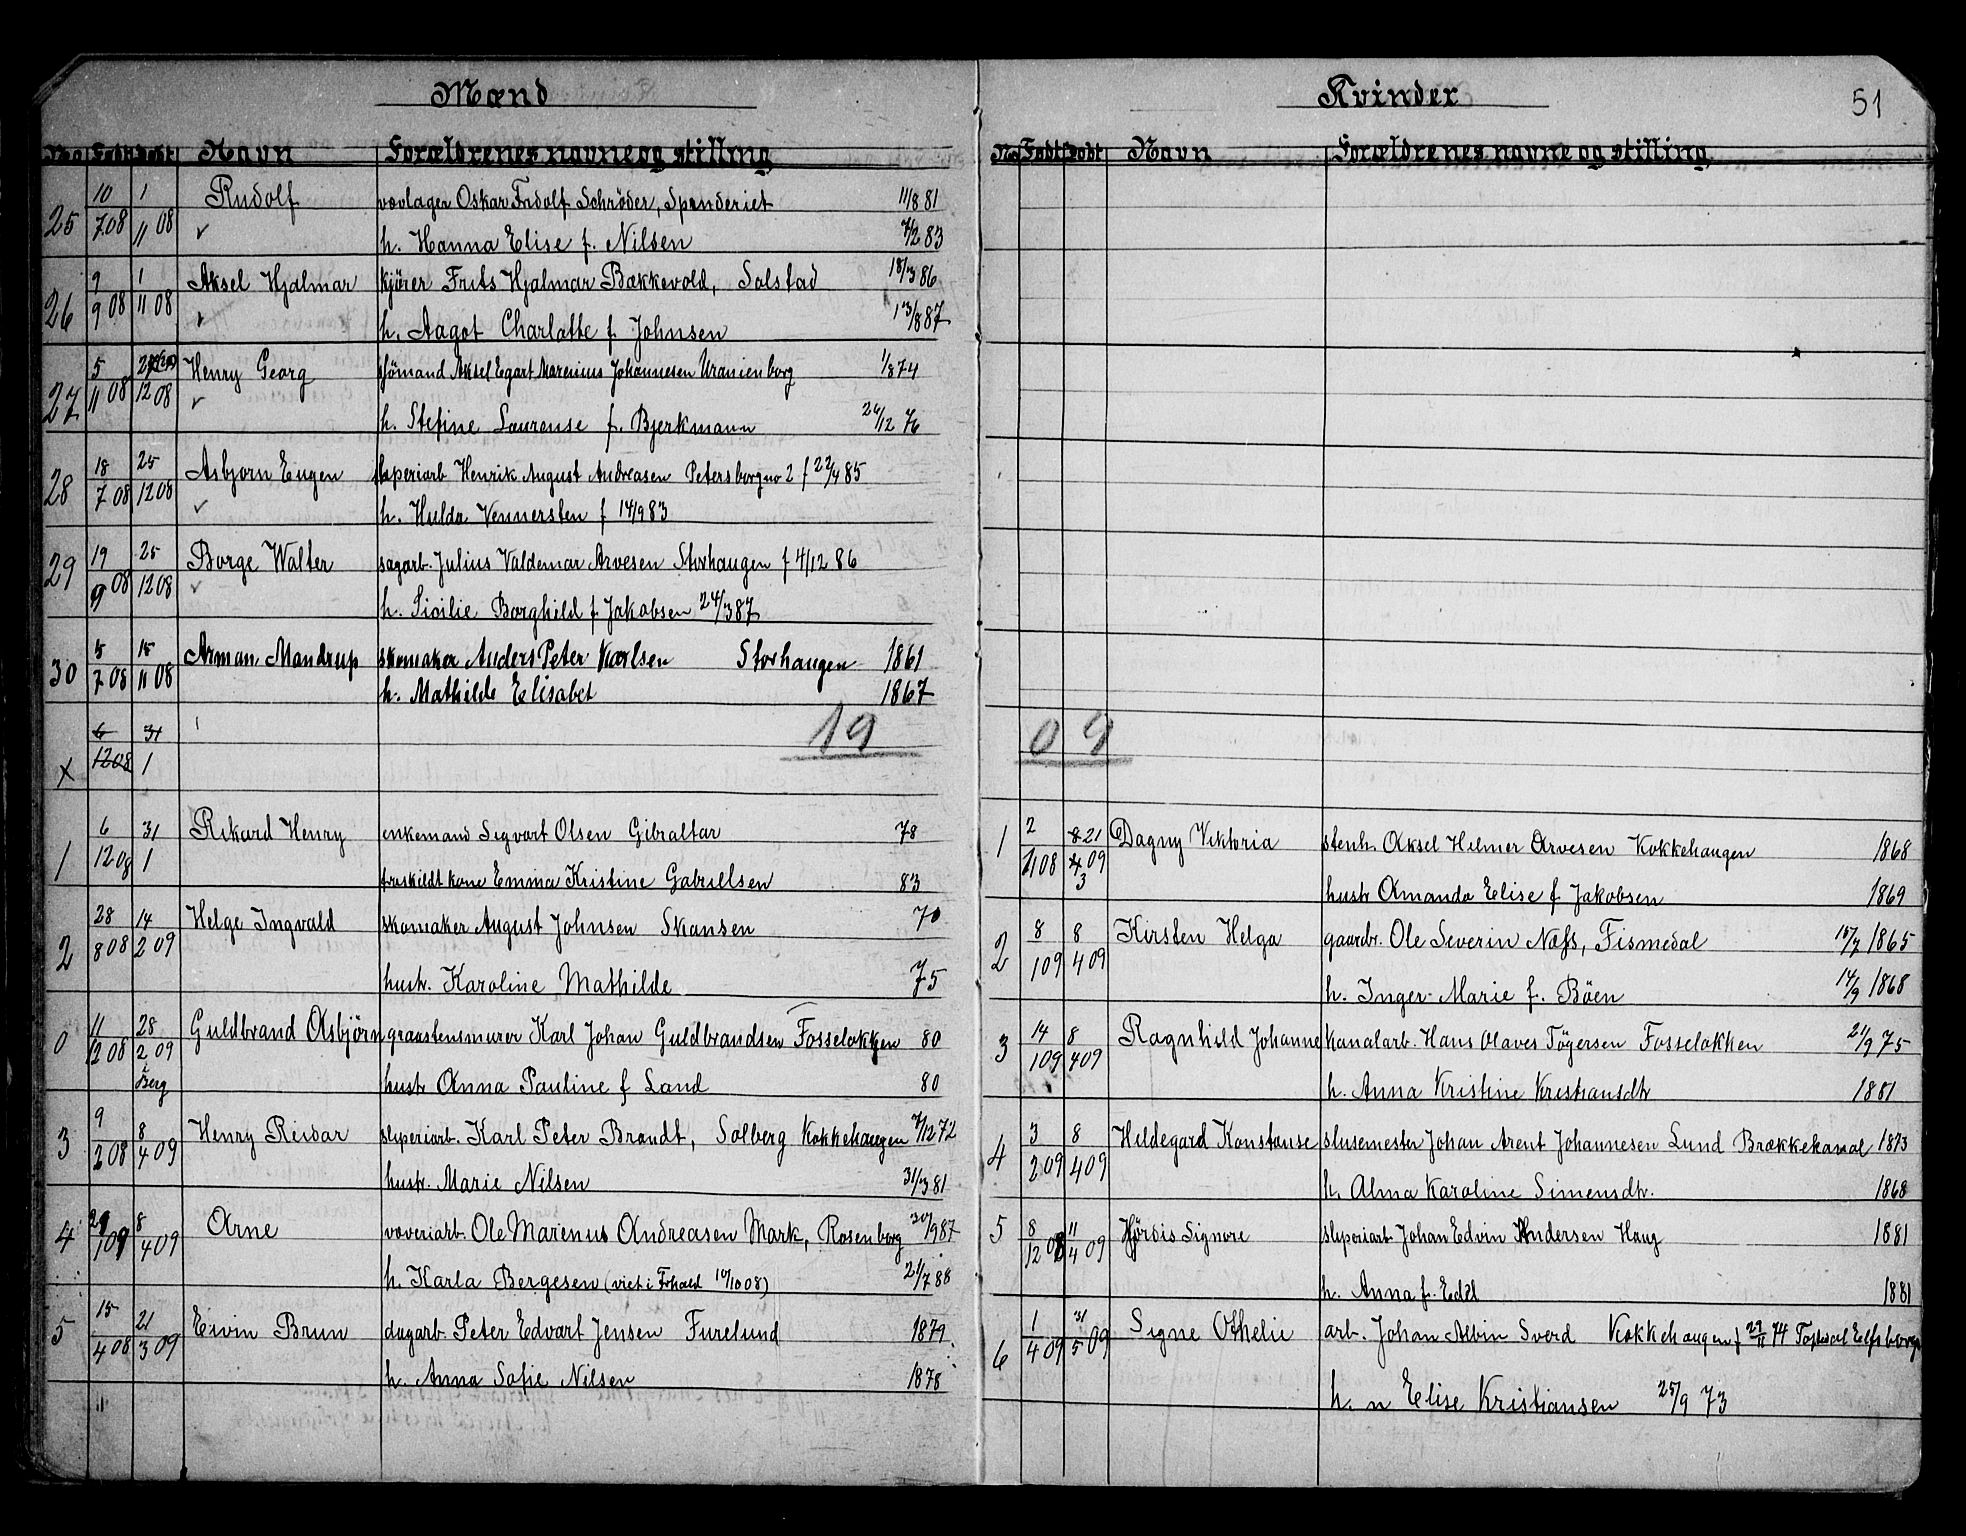 Mænd
No Født Døbt Navn Forældrenes navne og stilling
25 10/7 08 1/11 08 Rudolf vævlager Oskar Fadolf Schröder, Spinderiet 11/8 81
h. Hanna Elise f. Nilsen 7/2 83
26 9/9 08 1/11 08 Aksel Hjalmar kjører Frits Hjalmar Bækkevold, Solstad 18/3 86
h. Aagot Charlotte f. Johnsen 13/8 87
27 5/11 08 12 08 Henry Georg sjömand Aksel Egart Marenius Johannesen Uranienborg 1/8 74
h. Stefine Laurense f. Bjerkmann 26/12 76
28 18/7 08 25/12 08 Asbjorn Eugen sliperiarb Henrik August Andreasen Petersborg no 2 f 22/4 85
h. Hulda Vennersten f 14/9 83
29 19/9 08 25/12 08 Borge Walter sagarb. Julius Valdemar Arvesen Storhaugen f 4/12 86
h. Sicilie Borghild f. Jakobsen 24/3 87
30 5/7 08 15/11 08 Arman. Mandrup skomaker Anders Peter Karlsen Storhaugen 1861
h. Mathilde Elisabet 1867
x 6/12 08 31/1
19
1 6/12 08 31/1 Rikard Henry enkemand Sigvart Olsen Gibraltar 78
fraskildt kone Emma Kristine Gabrillsen 83
2 28/8 08 14/2 09 Helge Ingvald skomaker August Johnsen Skansen 70
hustr. Karoline Mathilde 75
0 11/12 08 28/2 09 i Berg Guldbrand Asbjörn graastensmurer Karl Johan Guldbrandsen Fosseløkken 80
hustr Anna Pauline f Land 80
3 9/2 08 8/4 09 Henry Reidar sliperiarb. Karl Peter Brandt, Solberg Kokkehaugen 7/12 72
hustr. Marie Nilsen 31/3 81
4 29/1 09 8/4 09 Arne væveriarb. Ole Marenus Andreasen Mark, Rosenborg 30/9 87
h. Karla Bergesen (viet i Frhald 10/10 08) 21/7 88
5 15/4 08 21/3 09 Eivin Brun dagarb. Peter Edvart Jensen Furelund 1879
h. Anna Sofie Nilsen 1878
Kvinder
51
No Født Døbt Navn Forældrenes navne og stilling
09
1 2/11 08 8 21/4 09 3 Dagny Viktoria stenh. Aksel Hilmer Arvesen Kokkehaugen 1868
hustr Amanda Elise f Jakobsen 1869
2 8/1 09 8/4 09 Kirsten Helga gaardbr. Ole Severin Næss, Fismedal 15/7 1865
h. Inger Marie f. Böen 14/9 1868
3 14/1 09 8/4 09 Ragnhild Johanne kanalarb. Hans Olaves Töyersen Fosseløkken 21/9 75
h. Anna Kristine Kristiansdtr 1881
4 3/2 09 8/4 09 Hildegard Konstanse slusemester Johan Arent Johannesen Lund Brækkekanal 1873
h. Alma Karoline Simensdtr. 1868
5 8/12 08 11/4 09 Hjördis Signore sliperiarb Johan Edvin Andersen Haug 1881
h. Anna f. Edel 1881
6 1/4 09 31/5 09 Signe Othelie arb. Johan Albin Sverd Kokkehaugen f 29/11 74
h. n Elise Kristiansen 25/9 73